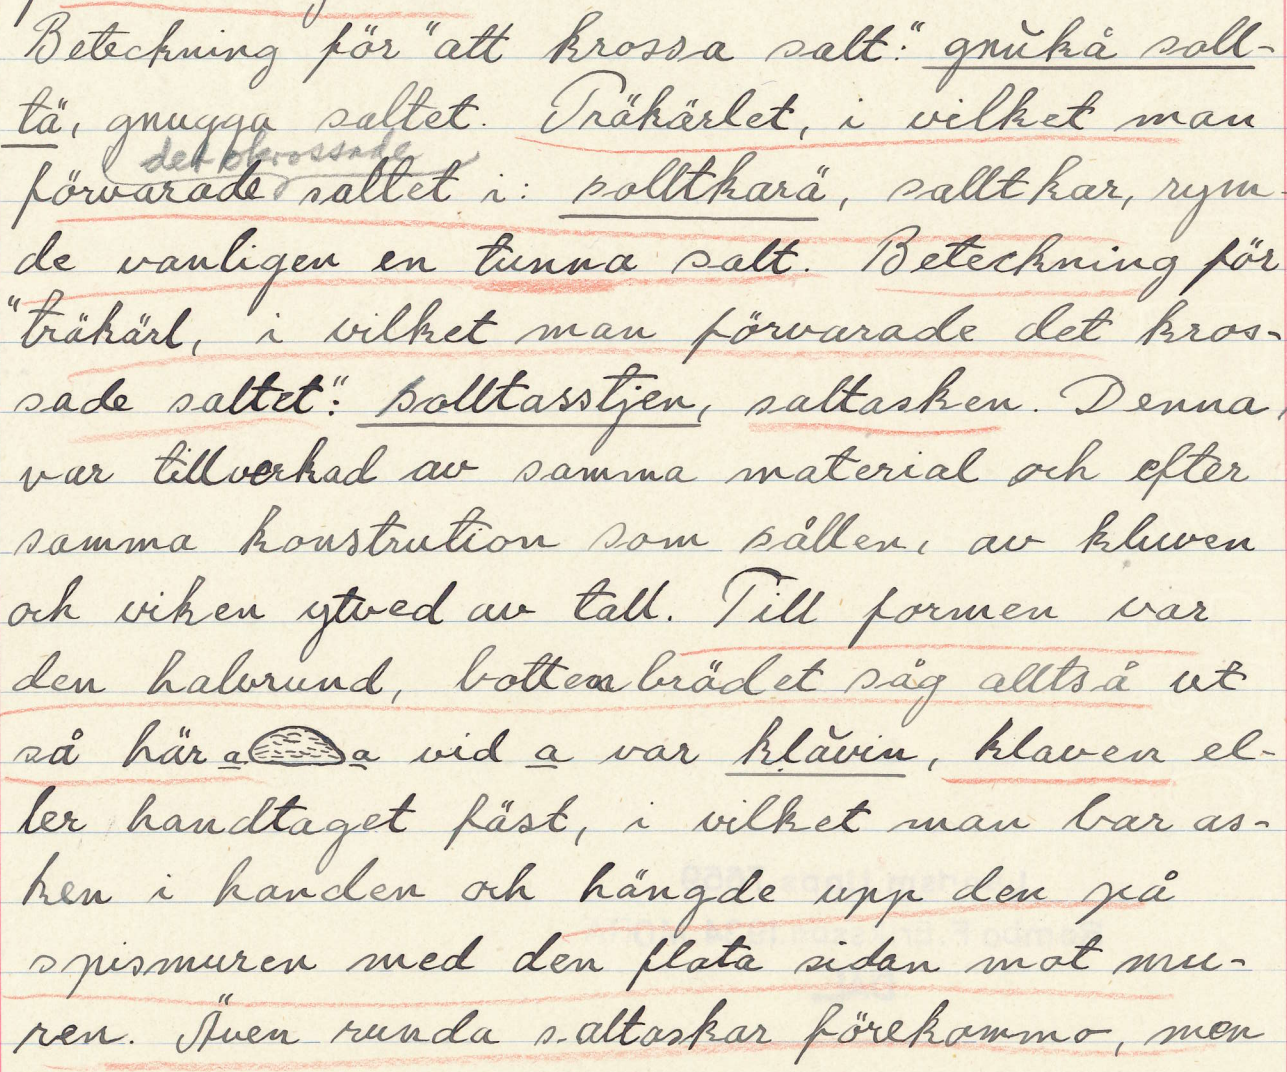 Beteckning för "att krossa salt": gnŭkå soll-
tä, gnugga saltet. Träkärlet, i vilket man
det okrossade
förvarade saltet i: solltkarä, salltkar, rym-
de vanligen en tunna salt. Beteckning för
"träkärl, i vilket man förvarade det kros-
sade saltet": solltasstjen, saltasken. Denna,
var tillverkad av samma material och efter
samma konstrution som sållen, av kluven
och viken ytved av tall. Till formen var
den halvrund, bottenbrädet såg alltså ut
så här a a vid a var klăvin, klaven el-
ler handtaget fäst, i vilket man bar as-
ken i handen och hängde upp den på
spismuren med den flata sidan mot mu-
ren. Även runda saltaskar förekommo, men